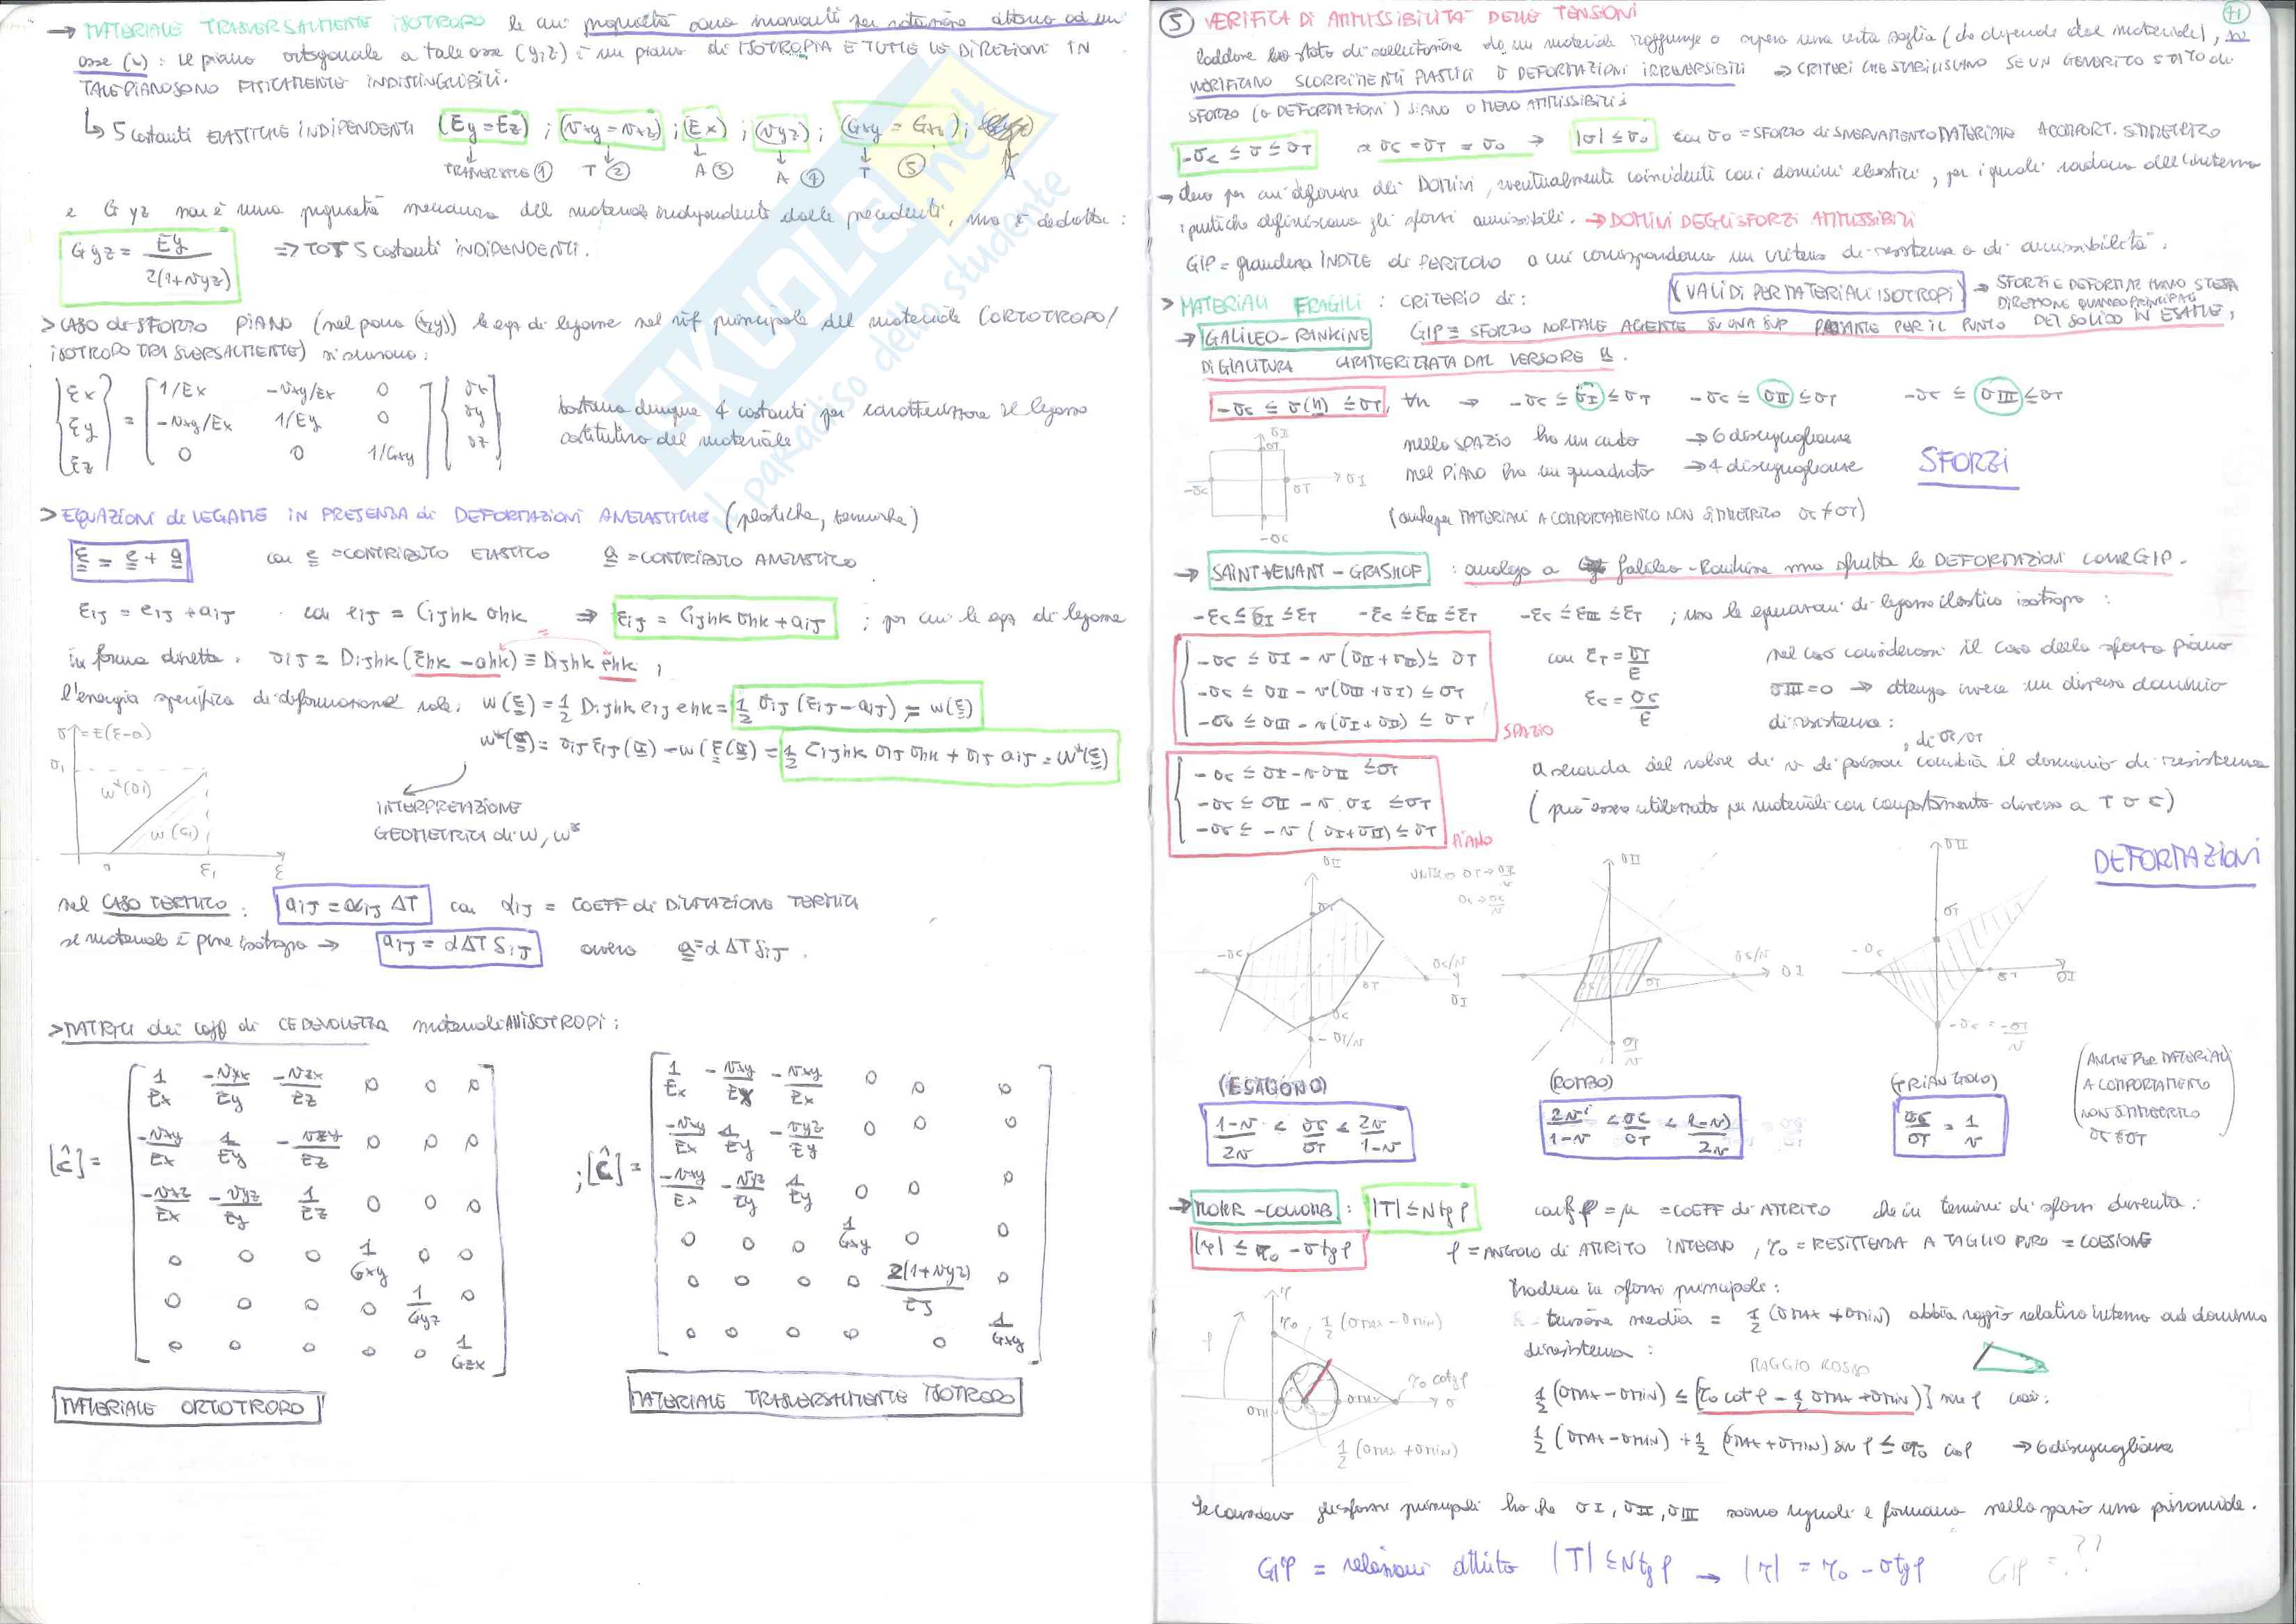 → MATERIALE TRASVERSALMENTE ISOTROPO le cui proprietà sono invarianti per rotazione attorno ad un
asse (x) : le piano ortogonale a tale asse (y,z) è un piano di ISOTROPIA E TUTTE LE DIREZIONI IN
TALE PIANO SONO FISICAMENTE INDISTINGUIBILI.
↳ 5 costanti ELASTICHE INDIPENDENTI (Ey = Ez) ; (νxy = νxz) ; (Ex) ; (νyz) ; (Gxy = Gxz) ;
TRASVERSALE ① T ② A ③ A ④ T ⑤ A
e Gyz non è una proprietà meccanica del materiale indipendente dalle precedenti, ma è dedotta :
Gyz = Ey / 2(1+νyz) ⇒ TOT 5 costanti INDIPENDENTI.
> CASO di SFORZO PIANO (nel piano (x,y)) le eqz di legame nel rif principale del materiale (ORTOTROPO/
ISOTROPO TRASVERSALMENTE) si scrivono :
{εx εy εz} = [1/Ex -νxy/Ex 0
-νxy/Ex 1/Ey 0
0 0 1/Gxy] {σx σy σz}
bastano dunque 4 costanti per caratterizzare il legame
costitutivo del materiale
> EQUAZIONI di LEGAME IN PRESENZA di DEFORMAZIONI ANELASTICHE (plastiche, termiche)
ε = e + a con e = CONTRIBUTO ELASTICO a = CONTRIBUTO ANELASTICO
εij = eij + aij con eij = Cijhk σhk ⇒ εij = Cijhk σhk + aij ; per cui le eqz di legame
in forma diretta : σij = Dijhk (εhk - ahk) ≡ Dijhk ehk ;
l'energia specifica di deformazione vale : w(ε) = 1/2 Dijhk eij ehk = 1/2 σij (εij - aij) = w(ε)
w*(σ) = σij εij(σ) - w(ε(σ)) = 1/2 Cijhk σij σhk + σij aij = w*(ε)
σ = E(ε-a)
σ1
w*(σ1)
w(ε1)
0 ε1 ε
INTERPRETAZIONE
GEOMETRICA di w, w*
nel CASO TERMICO : aij = αij ΔT con αij = COEFF di DILATAZIONE TERMICA
se materiale è pure isotropo → aij = αΔT δij ovvero a = α ΔT δij .
> MATRICI dei coeff di CEDEVOLEZZA materiali ANISOTROPI :
[ĉ] = 1/Ex -νyx/Ey -νzx/Ez 0 0 0
-νxy/Ex 1/Ey -νzy/Ez 0 0 0
-νxz/Ex -νyz/Ey 1/Ez 0 0 0
0 0 0 1/Gxy 0 0
0 0 0 0 1/Gyz 0
0 0 0 0 0 1/Gzx
MATERIALE ORTOTROPO
; [ĉ] = 1/Ex -νxy/Ex -νxy/Ex 0 0 0
-νxy/Ex 1/Ey -νyz/Ey 0 0 0
-νxy/Ex -νyz/Ey 1/Ey 0 0 0
0 0 0 1/Gxy 0 0
0 0 0 0 2(1+νyz)/Ey 0
0 0 0 0 0 1/Gxy
MATERIALE TRASVERSALMENTE ISOTROPO
SKUOLA.net
il paradiso dello studente
11
⑤ VERIFICA DI AMMISSIBILITÀ DELLE TENSIONI
laddove lo stato di sollecitazione di un materiale raggiunge o supera una certa soglia (che dipende dal materiale), si
VERIFICANO SCORRIMENTI PLASTICI O DEFORMAZIONI IRREVERSIBILI → CRITERI CHE STABILISCANO SE UN GENERICO STATO di
SFORZO (o DEFORMAZIONI) SIANO O MENO AMMISSIBILI :
-σc ≤ σ ≤ σT se σc = σT = σ0 → |σ| ≤ σ0 con σ0 = SFORZO di SNERVAMENTO MATERIALE A COMPORT. SIMMETRICO
→ devo per cui definire dei DOMINI, eventualmente coincidenti con i domini elastici, per i quali cadono all'interno
i punti che definiscono gli sforzi ammissibili. → DOMINI DEGLI SFORZI AMMISSIBILI
GIP = grandezza INDICE di PERICOLO a cui corrispondono un criterio di resistenza o di ammissibilità.
> MATERIALI FRAGILI : CRITERIO di : (VALIDI PER MATERIALI ISOTROPI) → SFORZI E DEFORMAZ HANNO STESSA
DIREZIONE QUANDO PRINCIPALI
→ GALILEO-RANKINE GIP = SFORZO NORMALE AGENTE SU UNA SUP PASSANTE PER IL PUNTO DEL SOLIDO IN ESAME,
DI GIACITURA CARATTERIZZATA DAL VERSORE n.
-σc ≤ σ(n) ≤ σT, ∀n → -σc ≤ σI ≤ σT -σc ≤ σII ≤ σT -σc ≤ σIII ≤ σT
σII
σT
-σc σT → σI
-σc
nello SPAZIO ho un cubo → 6 disuguaglianze
nel PIANO ho un quadrato → 4 disuguaglianze
(anche per MATERIALI A COMPORTAMENTO NON SIMMETRICO σc ≠ σT)
SFORZI
→ SAINT VENANT - GRASHOF : analogo a Galileo-Rankine ma sfrutta le DEFORMAZIONI come GIP.
-εc ≤ εI ≤ εT -εc ≤ εII ≤ εT -εc ≤ εIII ≤ εT ; uso le equazioni di legame elastico isotropo :
-σc ≤ σI - ν(σII+σIII) ≤ σT
-σc ≤ σII - ν(σIII+σI) ≤ σT
-σc ≤ σIII - ν(σI+σII) ≤ σT
SPAZIO
con εT = σT/E
εc = σc/E
nel caso considerassi il caso dello sforzo piano
σIII = 0 → ottengo invece un diverso dominio
di resistenza :
-σc ≤ σI - ν σII ≤ σT
-σc ≤ σII - ν σI ≤ σT
-σc ≤ -ν (σI+σII) ≤ σT
PIANO
, di σc/σT
A seconda del valore di ν di poisson cambia il dominio di resistenza
(può essere utilizzato per materiali con comportamento diverso a T o C)
DEFORMAZIONI
UNISCO σT → σT/ν
σc → σc/ν
σII σT -σc σc/ν σT σI σc - σT/ν
σII σc/ν σI σc σT σT/ν
σII σT -σc σT σI -σc = -σT/ν
(ESAGONO) (ROMBO) (TRIANGOLO)
1-ν/2ν < σc/σT < 2ν/1-ν
2ν/1-ν < σc/σT < (1-ν)/2ν
σc/σT = 1/ν
(ANCHE PER MATERIALI
A COMPORTAMENTO
NON SIMMETRICO
σc ≠ σT)
→ MOHR-COULOMB : |T| ≤ N tg φ con tg φ = μ = COEFF di ATTRITO che in termini di sforzi diventa :
|τ| ≤ τ0 - σ tg φ φ = ANGOLO di ATTRITO INTERNO , τ0 = RESISTENZA A TAGLIO PURO = COESIONE
τ
φ τ0 1/2 (σmax - σmin)
τ0 cotg φ
σmin σmax σ
1/2 (σmax + σmin)
Traduco in sforzi principali :
tensione media = 1/2 (σmax + σmin) abbia raggio relativo interno al dominio
di resistenza :
RAGGIO ROSSO
1/2 (σmax - σmin) ≤ [τ0 cot φ - 1/2 σmax + σmin)] sin φ cioè :
1/2 (σmax - σmin) + 1/2 (σmax + σmin) sin φ ≤ τ0 cos φ → 6 disuguaglianze
Se considero gli sforzi principali ho che σI, σII, σIII sono uguali e formano nello spazio una piramide.
GIP = relazioni attrito |T| ≤ N tg φ → |τ| = τ0 - σ tg φ GIP = ??